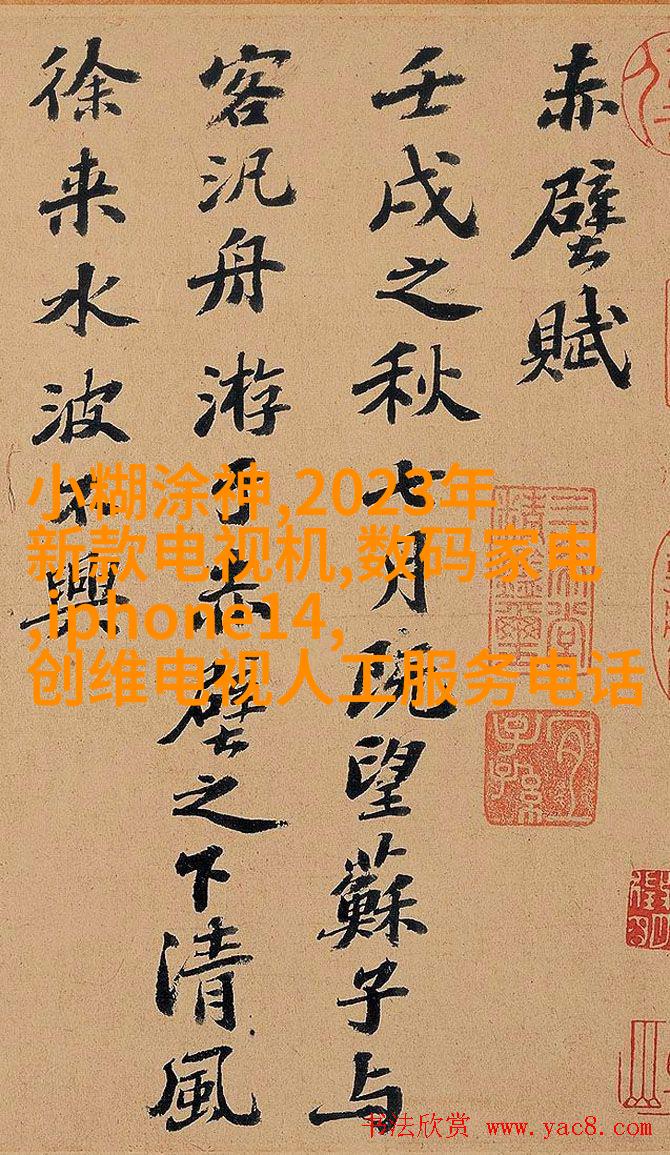 赤壁賦
壬戌之秋七月既望蘇子与
客汎舟游于赤壁之下清風
徐来水波不興
三希堂
精鑑璽
宜子孫
小糊涂神,2023年
新款电视机,数码家电
,iphone14,
创维电视人工服务电话
书法欣赏 www.yac8.com